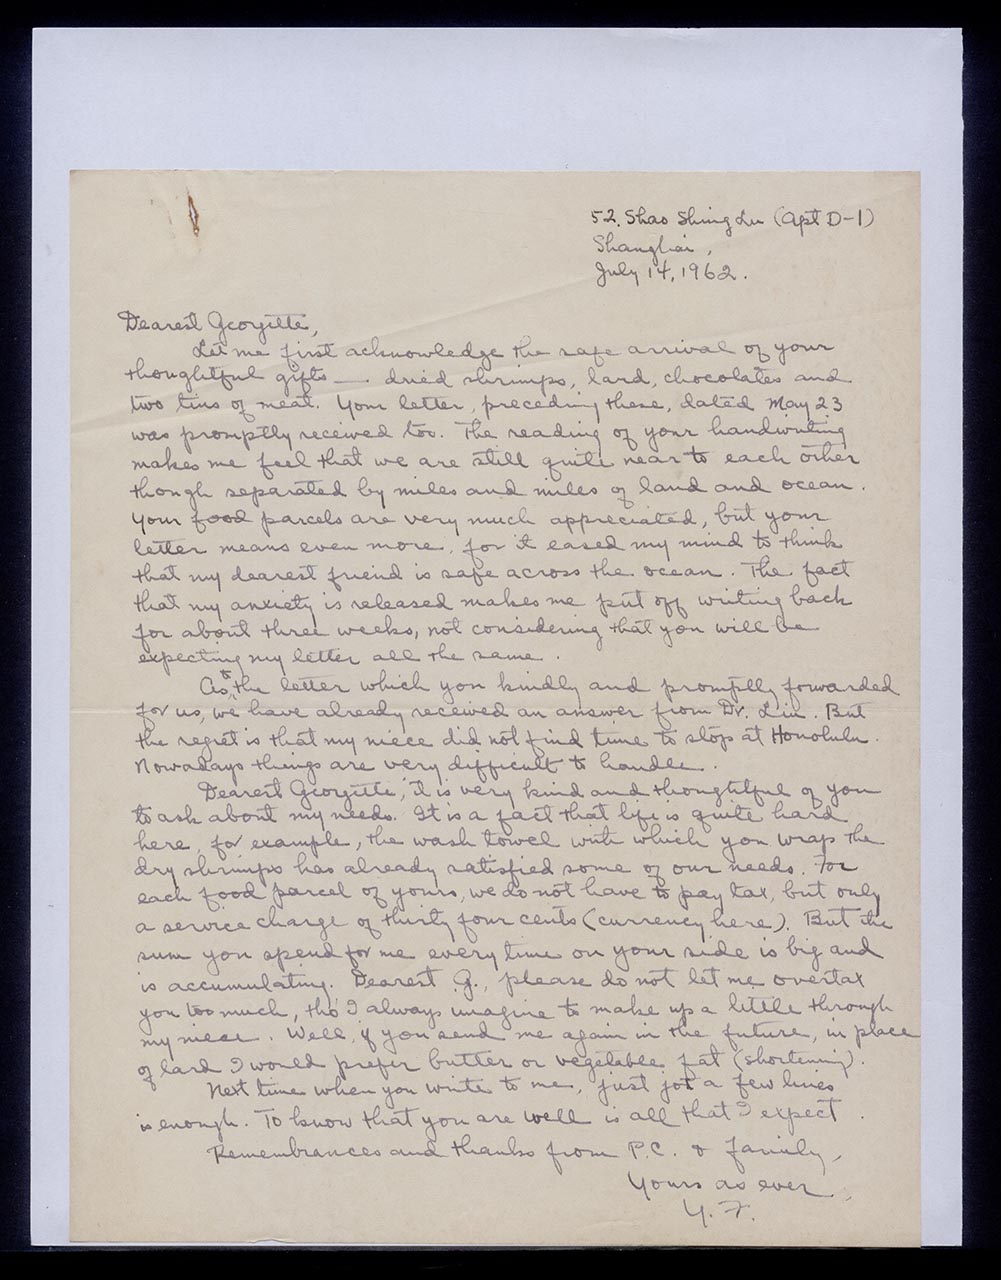 52, Shao Shing Lu (Apt D-1)
Shanghai,
July 14, 1962.
Dearest Georgette,
Let me first acknowledge the safe arrival of your
thoughtful gifts — dried shrimps, lard, chocolates and
two tins of meat. Your letter, preceding these, dated May 23
was promptly received too. The reading of your handwriting
makes me feel that we are still quite near to each other
though separated by miles and miles of land and ocean.
Your food parcels are very much appreciated, but your
letter means even more, for it eased my mind to think
that my dearest friend is safe across the ocean. The fact
that my anxiety is released makes me put off writing back
for about three weeks, not considering that you will be
expecting my letter all the same.
As to the letter which you kindly and promptly forwarded
for us, we have already received an answer from Dr. Liu. But
the regret is that my niece did not find time to stop at Honolulu.
Nowadays things are very difficult to handle.
Dearest Georgette, it is very kind and thoughtful of you
to ask about my needs. It is a fact that life is quite hard
here, for example, the wash towel with which you wrap the
dry shrimps has already satisfied some of our needs. For
each food parcel of yours, we do not have to pay tax, but only
a service charge of thirty four cents (currency here). But the
sum you spend for me every time on your side is big and
is accumulating. Dearest G., please do not let me overtax
you too much, tho' I always imagine to make up a little through
my niece. Well, if you send me again in the future, in place
of lard I would prefer butter or vegetable fat (shortening).
Next time when you write to me, just jot a few lines
is enough. To know that you are well is all that I expect.
Remembrances and thanks from P.C. & family,
Yours as ever,
Y. F.